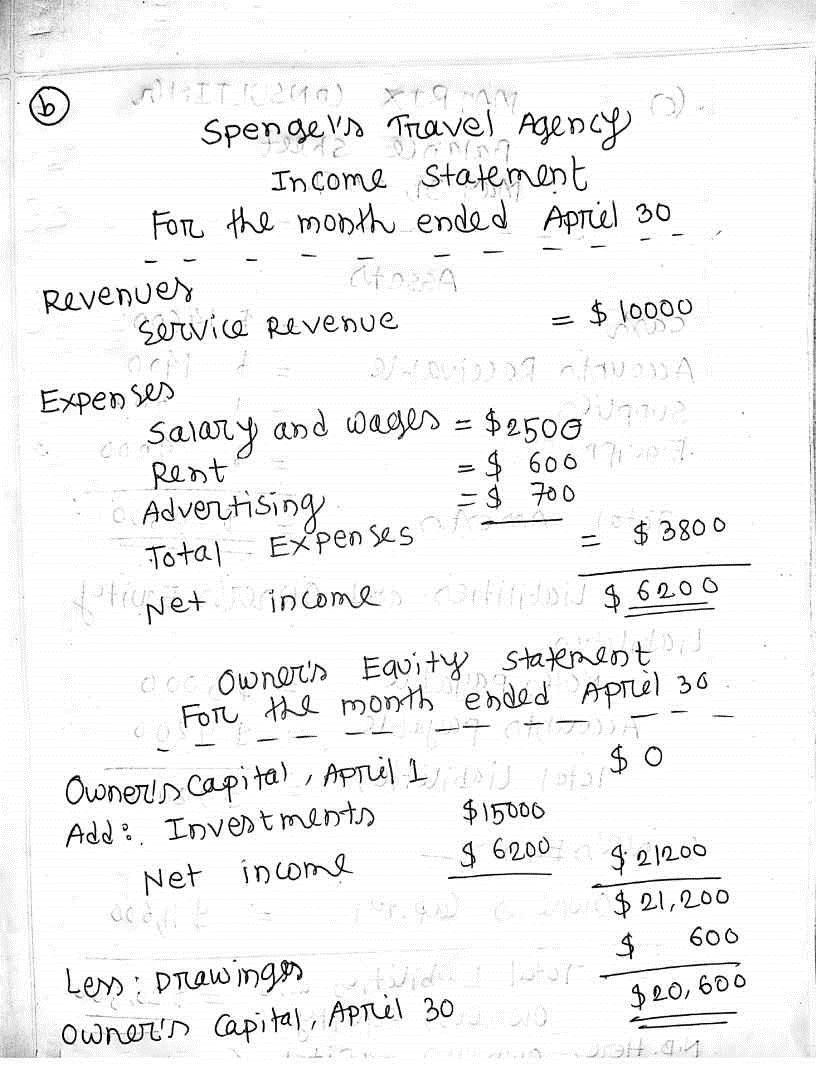 b
Spengel's Travel Agency
Income Statement
For the month ended April 30
Revenues
Service Revenue = $10000
Expenses
Salary and wages = $2500
Rent = $ 600
Advertising = $ 700
Total Expenses = $3800
Net income $6200
Owner's Equity Statement
For the month ended April 30
Owner's Capital, April 1 $0
Add: Investments $15000
Net income $6200 $21200
$21,200
Less: Drawings $ 600
Owner's Capital, April 30 $20,600